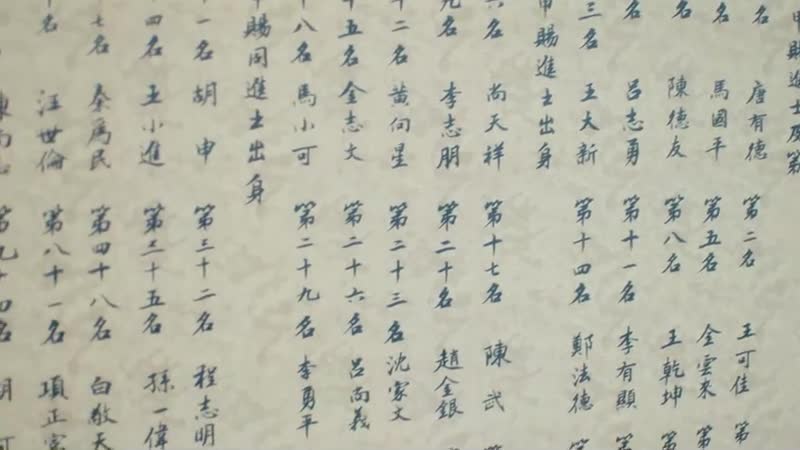 甲賜進士及第
名 唐有德 第二名 王可佳 第
名 馬國平 第五名 金雲來 第
名 陳德友 第八名 王乾坤 第
名 呂志勇 第十一名 李有顯 第
三名 王大新 第十四名 鄭法德 第
甲賜進士出身
六名 尚天祥 第十七名 陳武 第
九名 李志朋 第二十名 趙金銀
十二名 黃向星 第二十三名 沈家文
十五名 金志文 第二十六名 呂尚義
十八名 馬小可 第二十九名 李勇平
甲賜同進士出身
十一名 胡申 第三十二名 程志明
十四名 王小進 第三十五名 孫一偉
七名 秦爲民 第四十八名 白敬天
名 汪世倫 第八十一名 項正宗
第九十四名 胡